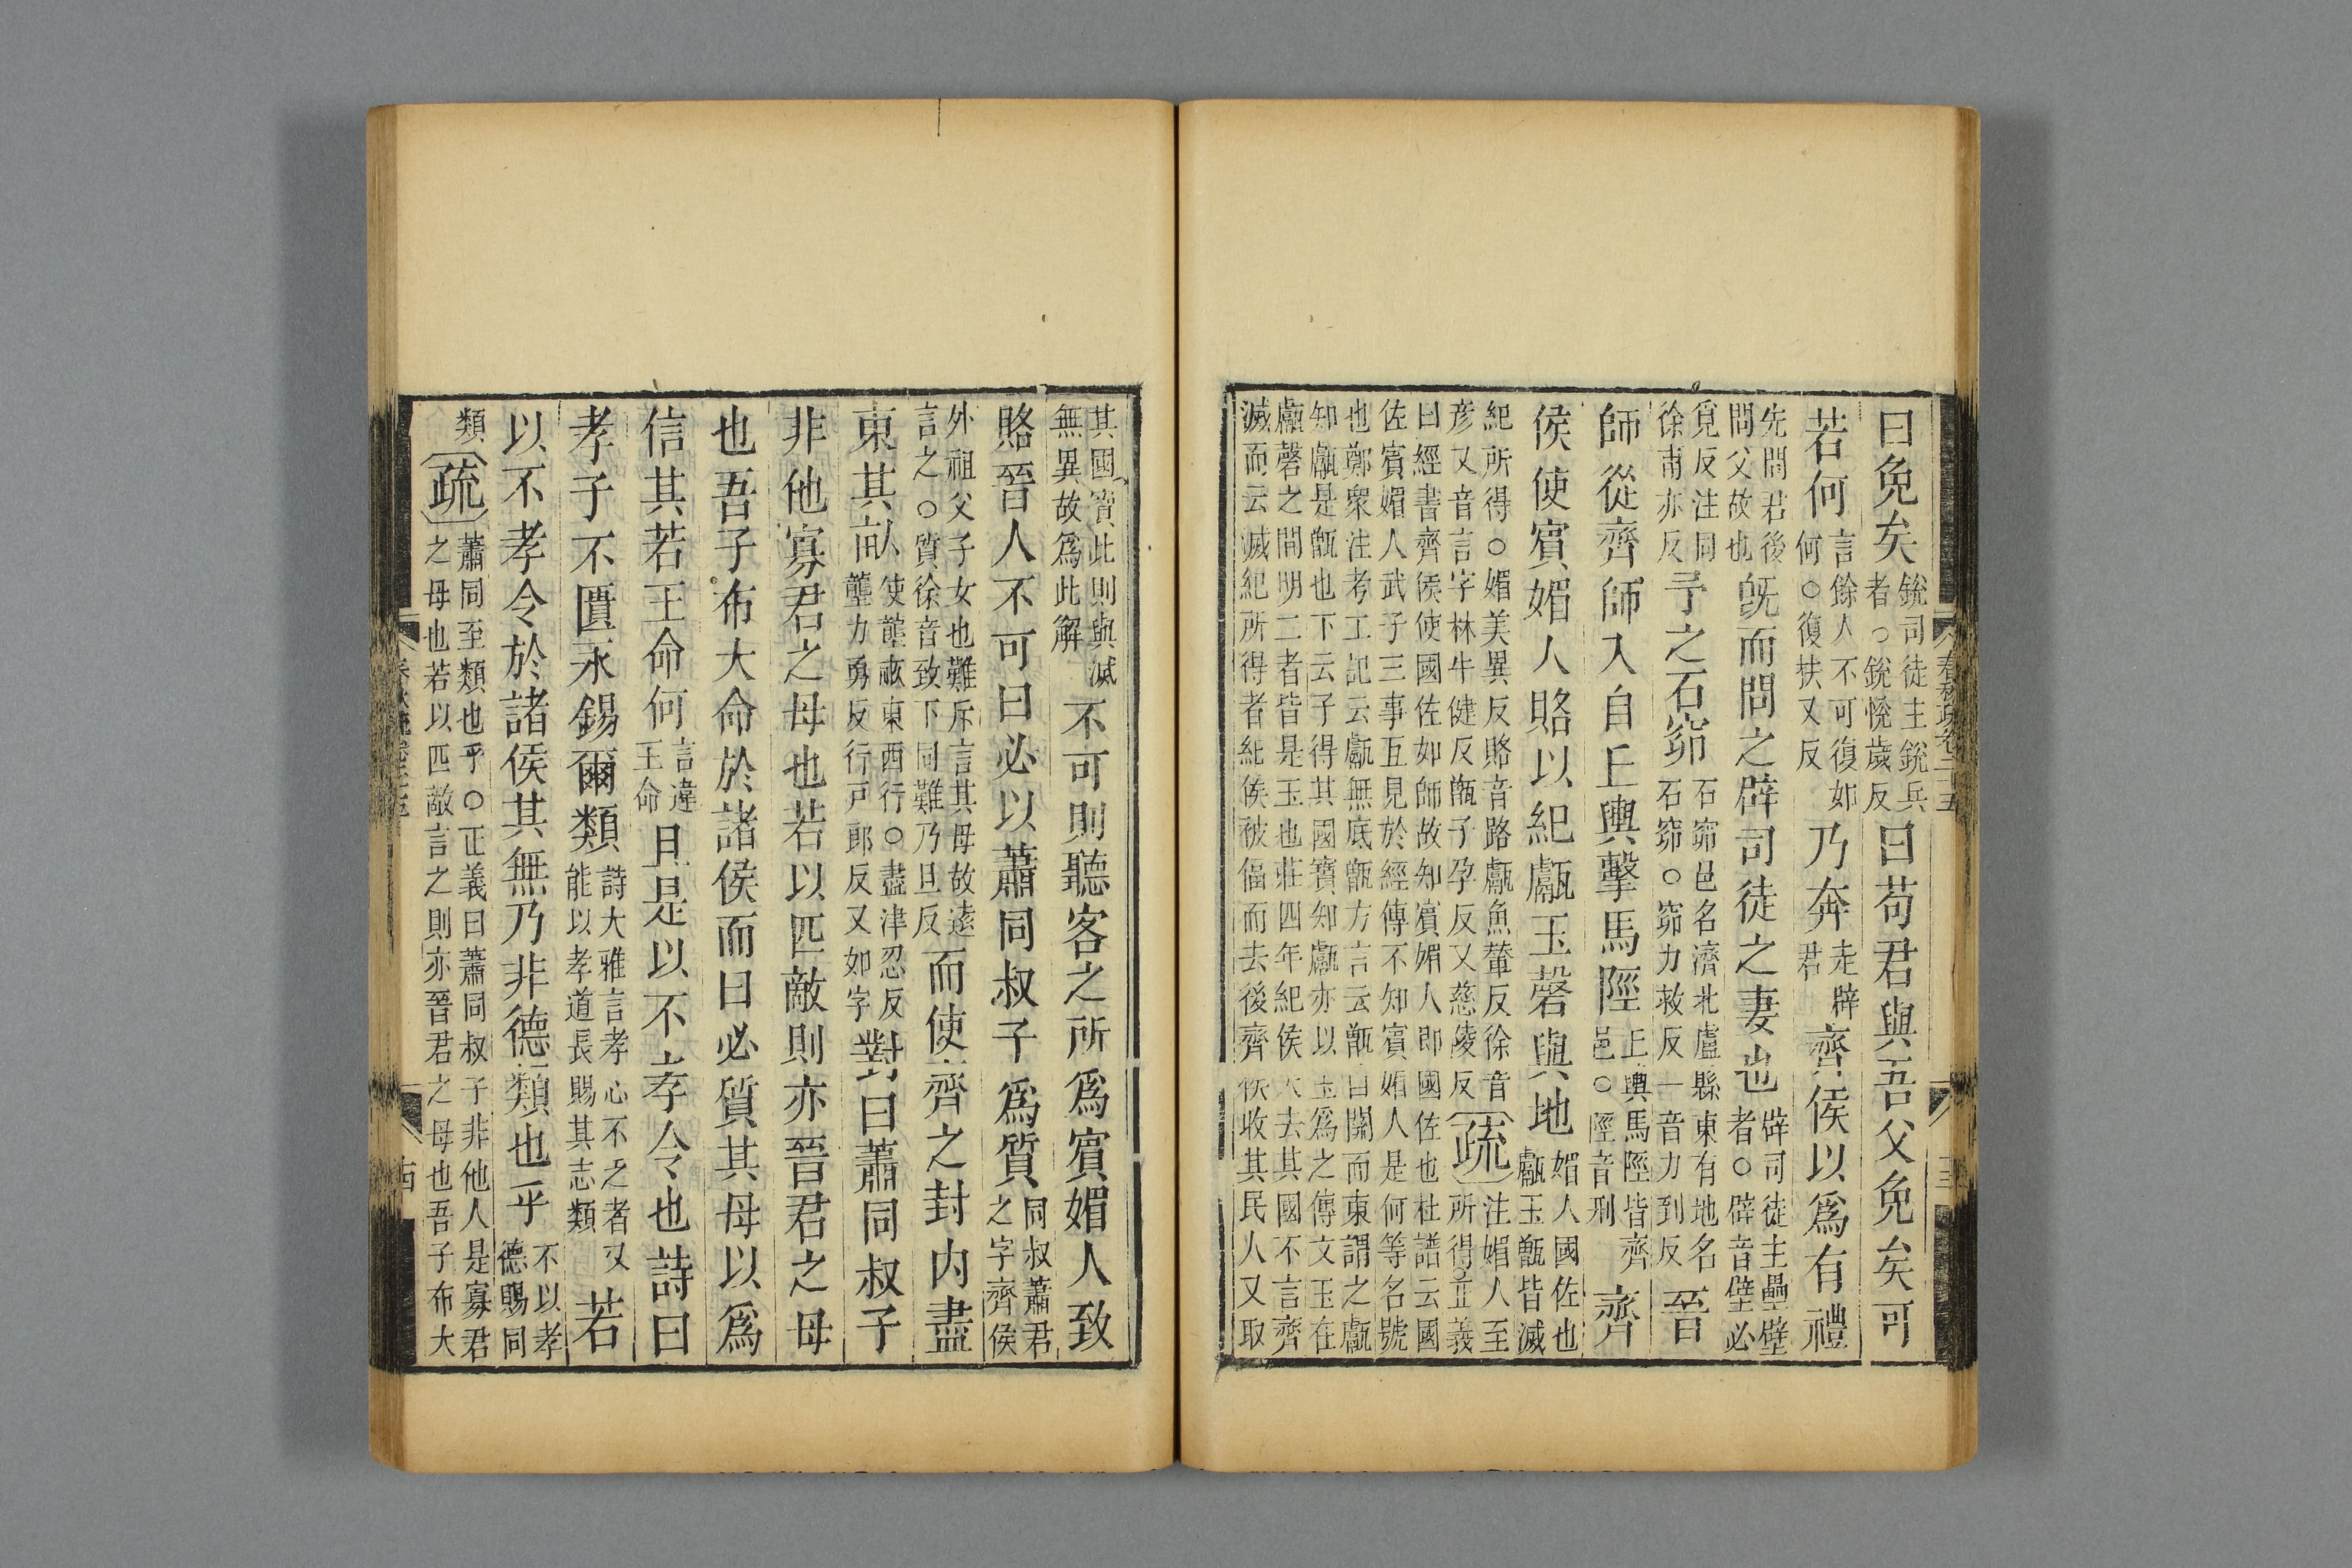 曰免矣銳司徒主銳兵者○銳悅歲反曰苟君與吾父免矣可
若何言餘人不可復如何○復扶又反乃奔走辟君齊侯以爲有禮
先問君後問父故也旣而問之辟司徒之妻也辟司徒主壘壁者○辟音壁必
覓反注同徐甫亦反予之石窌石窌邑名濟北盧縣東有地名石窌○窌力救反一音力到反晉
師從齊師入自丘輿擊馬陘丘輿馬陘皆齊邑○陘音刑齊
侯使賓媚人賂以紀甗玉磬與地媚人國佐也甗玉甑皆滅
紀所得○媚美異反賂音路甗魚輦反徐音彦又音言字林牛健反甑子孕反又慈陵反疏注媚人至所得○正義
曰經書齊侯使國佐如師故知賓媚人即國佐也杜譜云國
佐賓媚人武子三事互見於經傳不知賓媚人是何等名號
也鄭衆注考工記云甗無底甑方言云甑自關而東謂之甗
知甗是甑也下云子得其國寶知甗亦以玉爲之傳文玉在
甗磬之間明二者皆是玉也莊四年紀侯大去其國不言齊
滅而云滅紀所得者紀侯被偪而去後齊侯收其民人又取
春秋疏卷二十五
其國寶此則與滅無異故爲此解不可則聽客之所爲賓媚人致
賂晉人不可曰必以蕭同叔子爲質同叔蕭君之字齊侯
外祖父子女也難斥言其母故遠言之○質徐音致下同難乃旦反而使齊之封內盡
東其畝使壟畝東西行○盡津忍反壟力勇反行戸郎反又如字對曰蕭同叔子
非他寡君之母也若以匹敵則亦晉君之母
也吾子布大命於諸侯而曰必質其母以爲
信其若王命何言違王命且是以不孝令也詩曰
孝子不匱永錫爾類詩大雅言孝心不乏者又能以孝道長賜其志類若
以不孝令於諸侯其無乃非德類也乎不以孝德賜同
類疏蕭同至類也乎○正義曰蕭同叔子非他人是寡君之母也若以匹敵言之則亦晉君之母也吾子布大